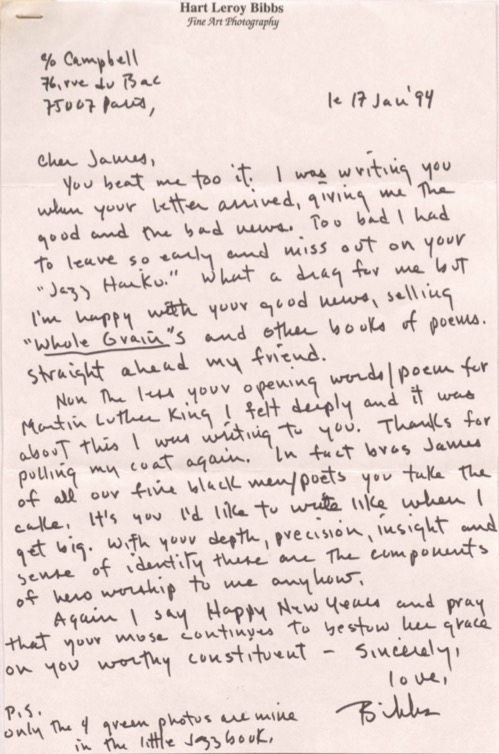 Hart Leroy Bibbs
Fine Art Photography
c/o Campbell
76, rue du Bac
75007 Paris,
le 17 Jan' 94
Cher James,
You beat me too it. I was writing you
when your letter arrived, giving me the
good and the bad news. Too bad I had
to leave so early and miss out on your
"Jazz Haiku." What a drag for me but
I'm happy with your good news, selling
"Whole Grain"s and other books of poems.
straight ahead my friend.
Non the less your opening words/poem for
Martin Luther King I felt deeply and it was
about this I was writing to you. Thanks for
pulling my coat again. In fact bros James
of all our fine black men/poets you take the
cake. It's you I'd like to write like when I
get big. With your depth, precision, insight and
sense of identity these are the components
of hero worship to me anyhow.
Again I say Happy New Years and pray
that your muse continues to bestow her grace
on you worthy constituent - Sincerely,
love,
Bibbs
P.S.
only the 4 green photos are mine
in the little Jazz book.